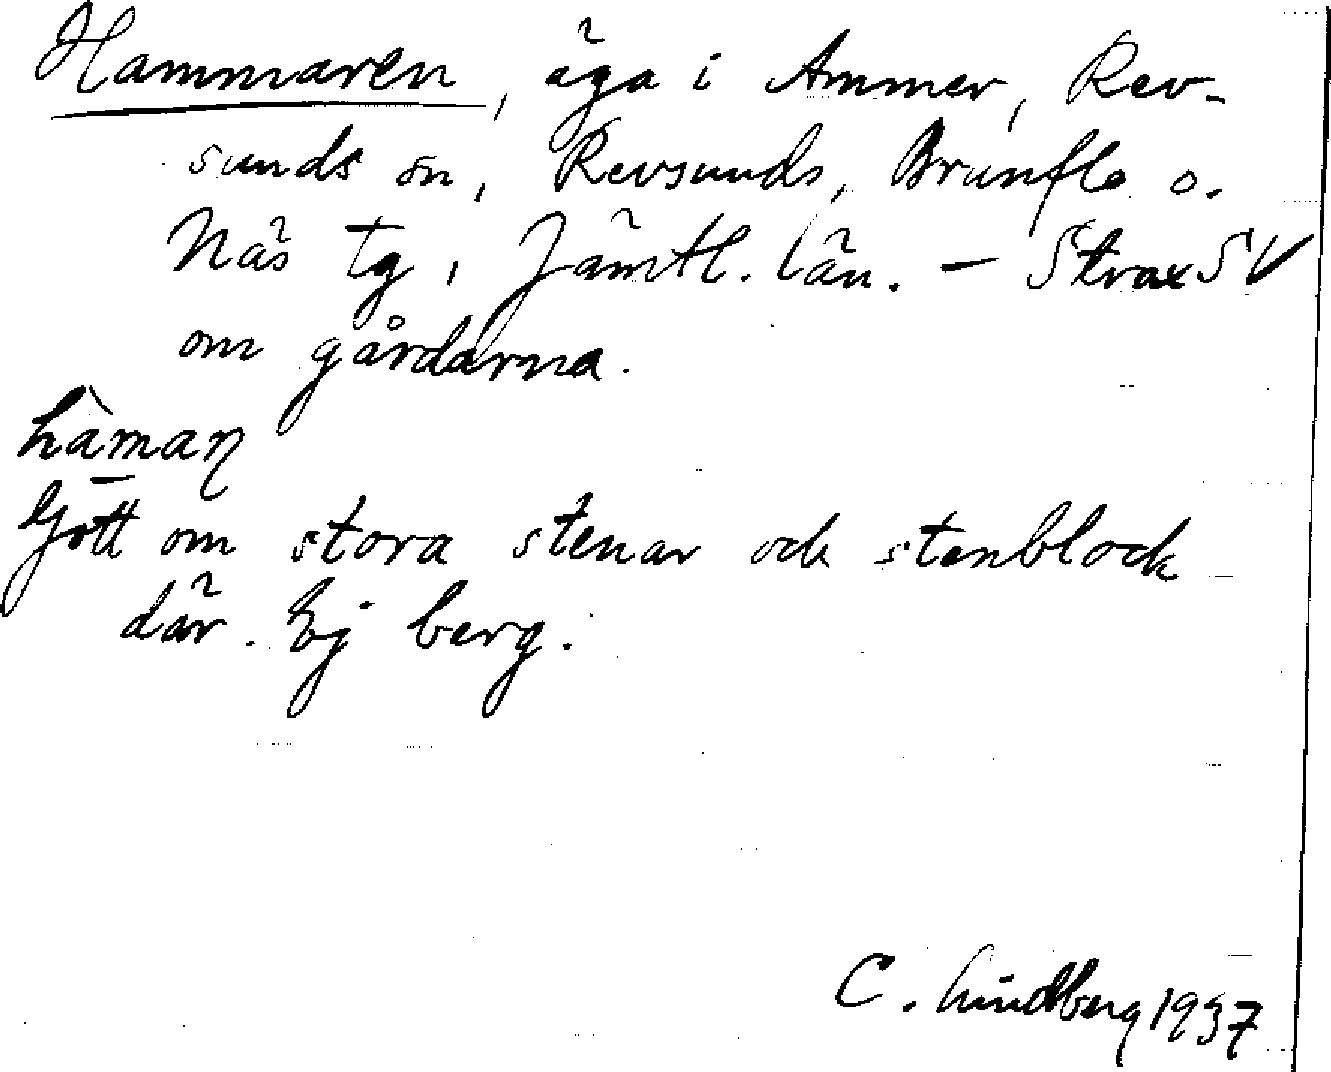 Hammaren, äga i Ammer, Rev-
sunds sn, Revsunds, Brunflo o.
Näs tg, Jämtl. län. – Strax SV
om gårdarna.
hàmaŋ
Gott om stora stenar och stenblock
där. Ej berg.
C. Lindberg 1937